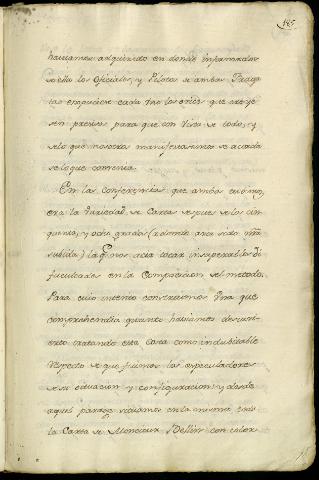 185
haviamos adquirido en donde informados
de ello los Oficiales, y Pilotos de ambas Fraga
tas expusiese cada uno los que
sen precisos para que con vista de todo, y
de lo que nosotros manifestasemos se acorda
se lo que convenia.
En las conferencias que ambos tubimos,
era la variedad de Cartas despues de los cin
quenta, y ocho grados (adonde avia sido mi
subida) la q.e nos hacia tocar insuperables di
ficultades en la Composicion del metodo.
Para cuio intento construimos una que
comprehendia quanto haviamos descuvi
erto tratando esta Costa como indubitable
respecto de que fuimos los especuladores
de su situacion y configuracion; y desde
aquel parage seguimos en la misma
la Carta de Monsieur Bellin con color